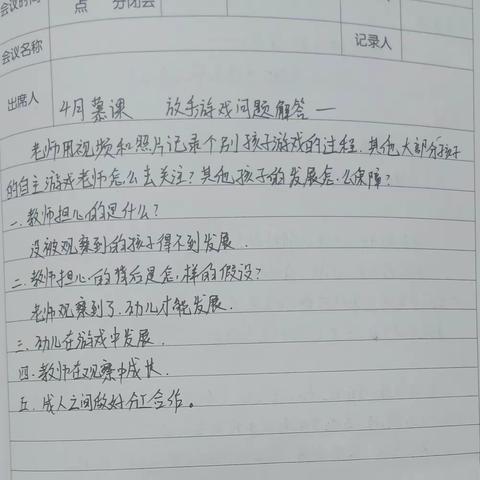 会议时间
点 分闭会
会议名称
记录人
出席人
4月慕课 放手游戏问题解答一
老师用视频和照片记录个别孩子游戏的过程.其他大部分孩子
的自主游戏老师怎么去关注?其他孩子的发展怎么保障?
一.教师担心的是什么?
没被观察到的孩子得不到发展.
二.教师担心的背后是怎样的假设?
老师观察到了.幼儿才能发展.
三.幼儿在游戏中发展.
四.教师在观察中成长.
五.成人之间做好分工合作。